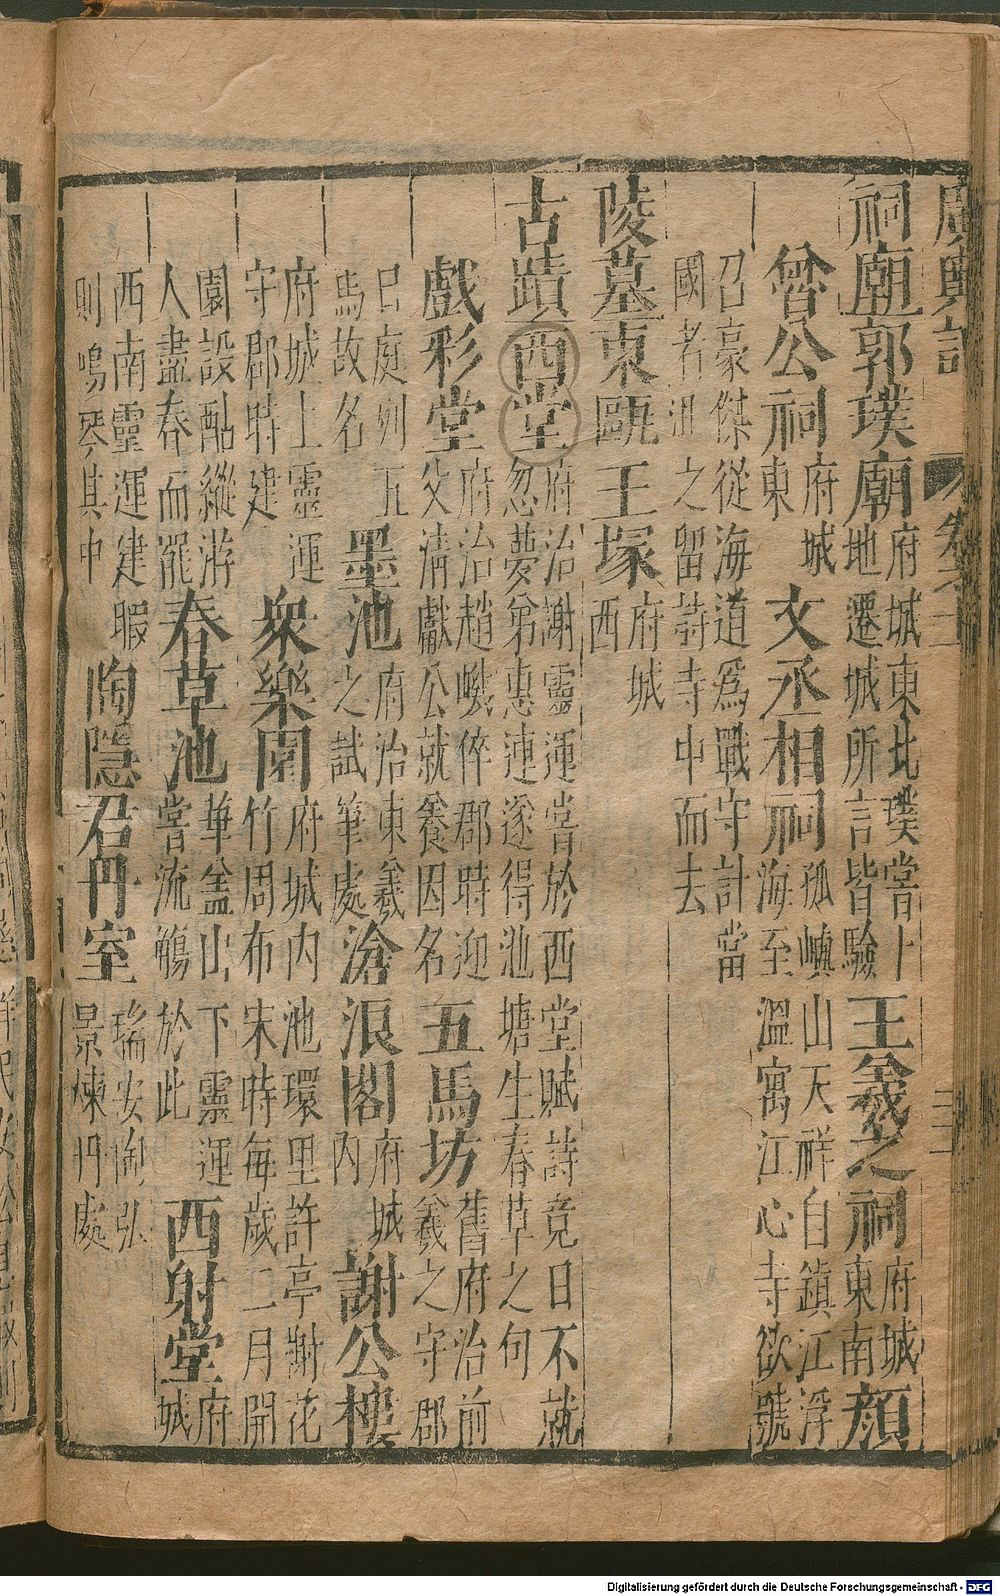 廣輿記 卷之十一
祠廟郭璞廟府城東北璞嘗卜地遷城所言皆驗王羲之祠府城東南顔
魯公祠府城東文丞相祠孤嶼山天祥自鎮江浮海至溫寓江心寺欲號
召豪傑從海道爲戰守計當國者沮之留詩寺中而去
陵墓東甌王塚府城西
古蹟西堂府治謝靈運嘗於西堂賦詩竟日不就忽夢弟惠連遂得池塘生春草之句
戲彩堂府治趙㠓倅郡時迎父清獻公就養因名五馬坊舊府治前羲之守郡
曰庭列五馬故名墨池府治東羲之試筆處滄浪閣府城內謝公樓
府城上靈運守郡時建衆樂園府城內池環里許亭榭花竹周布宋時每歲二月開
園設酤縱游人盡春而罷春草池華蓋山下靈運嘗流觴於此西射堂府城
西南靈運建暇則鳴琴其中陶隱君丹室瑞安陶弘景煉丹處
Digitalisierung gefördert durch die Deutsche Forschungsgemeinschaft - DFG